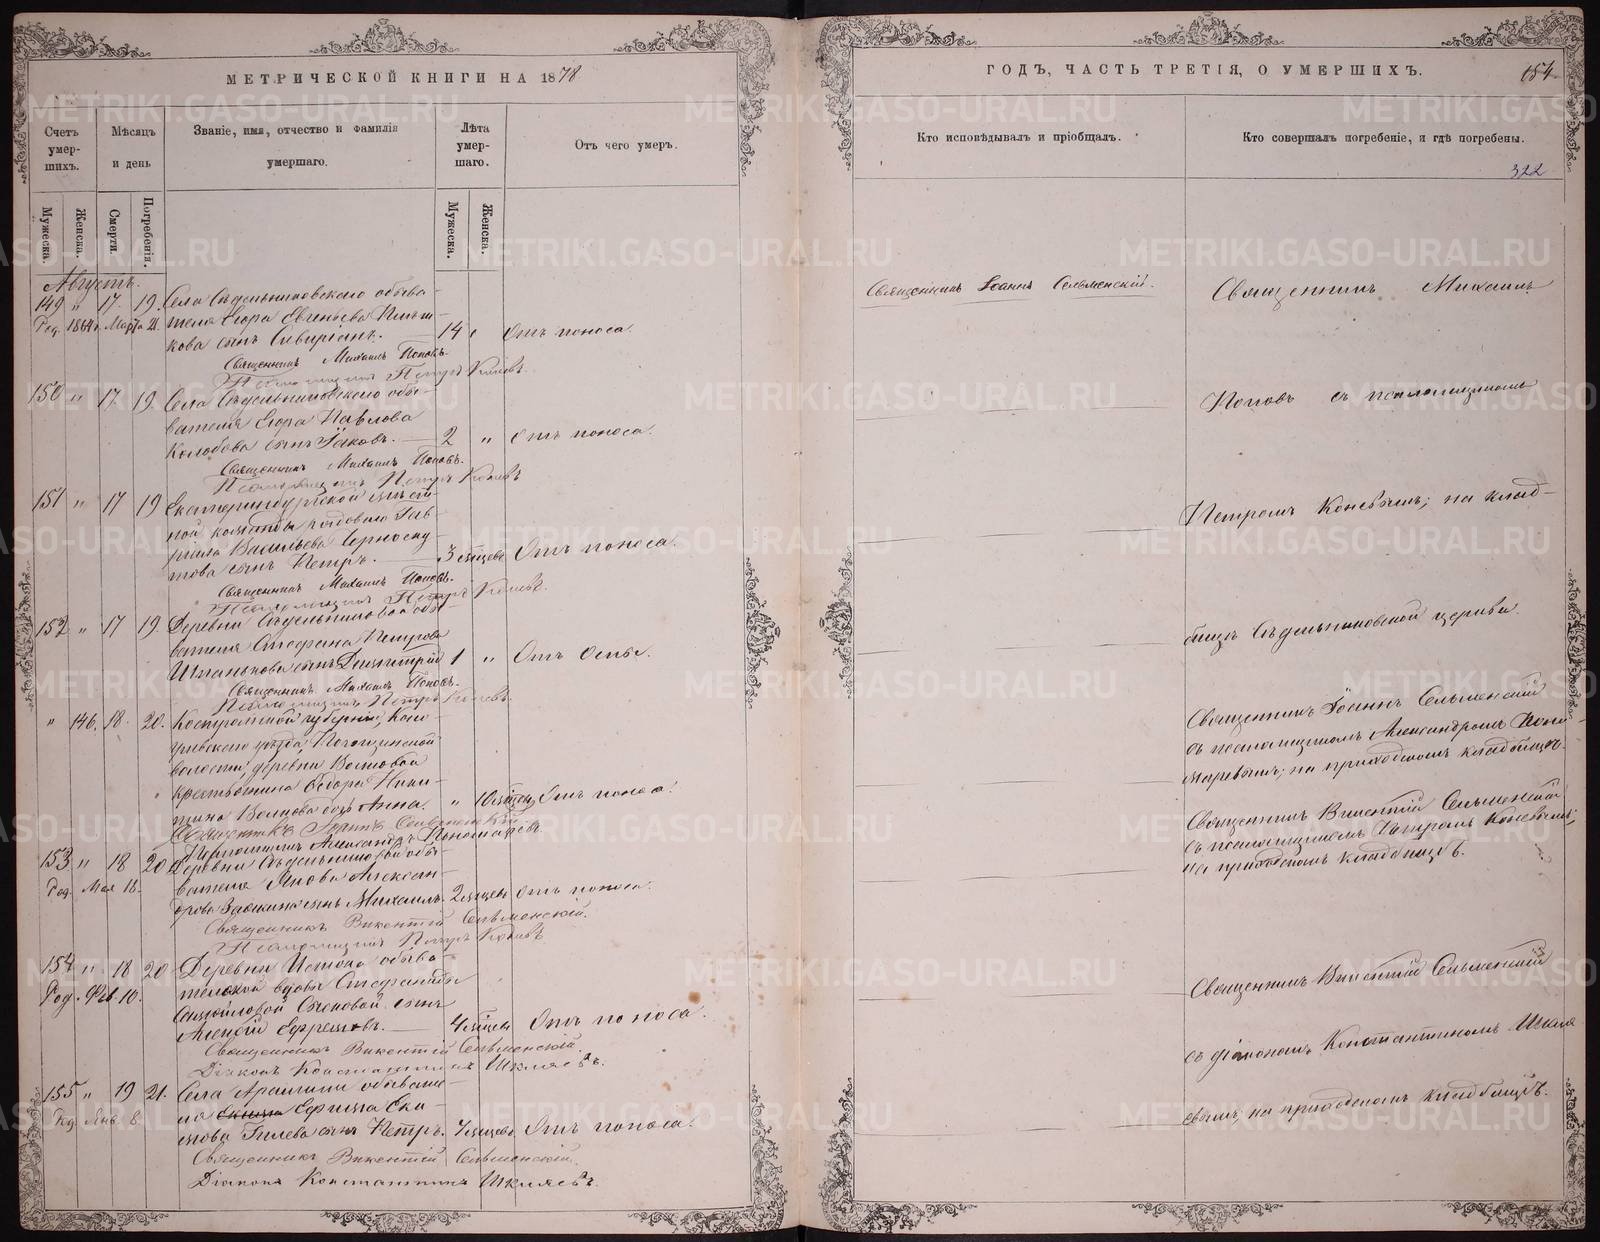 МЕТРИЧЕСКОЙ КНИГИ НА 1878
Счетъ умер-шихъ.
Мѣсяцъ и день
Званіе, имя, отчество и фамилія умершаго.
Лѣта умер-шаго.
Отъ чего умеръ.
Мужеска.
Женска.
Смерти.
Погребенія.
Мужеска.
Женска.
Августъ.
149 " 17. 19. Села Сѣдельниковскаго обыва-
Род. 1864 г. Марта 21. теля Егора Евгеньева
кова сынъ 14 " Отъ поноса.
Священникъ Михаилъ Поповъ.
Псаломщикъ Петръ Коневъ.
150 " 17. 19. Села Сѣдельниковскаго обы-
вателя Егора Павлова
Колобова сынъ Іаковъ. 2 " Отъ поноса.
Священникъ Михаилъ Поповъ.
Псаломщикъ Петръ Коневъ
151 " 17 19 Екатеринбургской мѣст-
ной команды рядоваго Гав-
рила Васильева Черноску-
това сынъ Петръ. 3 мѣсяцевъ Отъ поноса.
Священникъ Михаилъ Поповъ.
Псаломщикъ Петръ Коневъ.
152 " 17 19. Деревни Сѣдельниковой обы-
вателя Стефана Петрова
сынъ Димитрій 1 " Отъ Оспы.
Священникъ Михаилъ Поповъ.
Псаломщикъ Петръ Коневъ.
" 146. 18. 20. Костромской губерніи, Коло-
гривскаго уѣзда
волости, деревни Волковой
крестьянина Ѳедора Ники-
тина Волкова дочь Анна. " 10 мѣсяц. Отъ поноса.
Священникъ Іоаннъ Сельменскій
Псаломщикъ Александръ Пономаревъ.
153 " 18 20 Деревни Сѣдельниковой обы-
Род. Мая 18. вателя Якова Алексан-
дрова сынъ Михаилъ. 2 мѣсяцевъ Отъ поноса.
Священникъ Викентій Сельменскій.
Псаломщикъ Петръ Коневъ
154 " 18 20 Деревни Истока обыва-
Род. Фев. 10. тельской вдовы Стефаниды
Самойловой сынъ
Алексій Ефремовъ. 4 мѣсяц Отъ поноса.
Священникъ Викентій Сельменскій.
Діаконъ Константинъ Шкляевъ.
155 " 19 21. Села Арамили обывате-
Род. Янв. 8. ля Ефима Еки-
мова Гилева сынъ Петръ. 7 мѣсяцевъ Отъ поноса.
Священникъ Викентій Сельменскій.
Діаконъ Константинъ Шкляевъ.
ГОДЪ, ЧАСТЬ ТРЕТІЯ, О УМЕРШИХЪ.
154
Кто исповѣдывалъ и пріобщалъ.
Кто совершалъ погребеніе, и гдѣ погребены.
322
Священникъ Іоаннъ Сельменскій.
Священникъ Михаилъ
Поповъ съ псаломщикомъ
Петромъ Коневымъ; на клад-
бищѣ Сѣдельниковской церкви.
Священникъ Іоаннъ Сельменскій
съ псаломщикомъ Александромъ Поно-
маревымъ; на приходскомъ кладбищѣ.
Священникъ Викентій Сельменскій
съ псаломщикомъ Петромъ Коневымъ;
на приходскомъ кладбищѣ.
Священникъ Викентій Сельменскій
съ діакономъ Константиномъ Шкля-
евымъ; на приходскомъ кладбищѣ.
METRIKI.GASO-URAL.RU